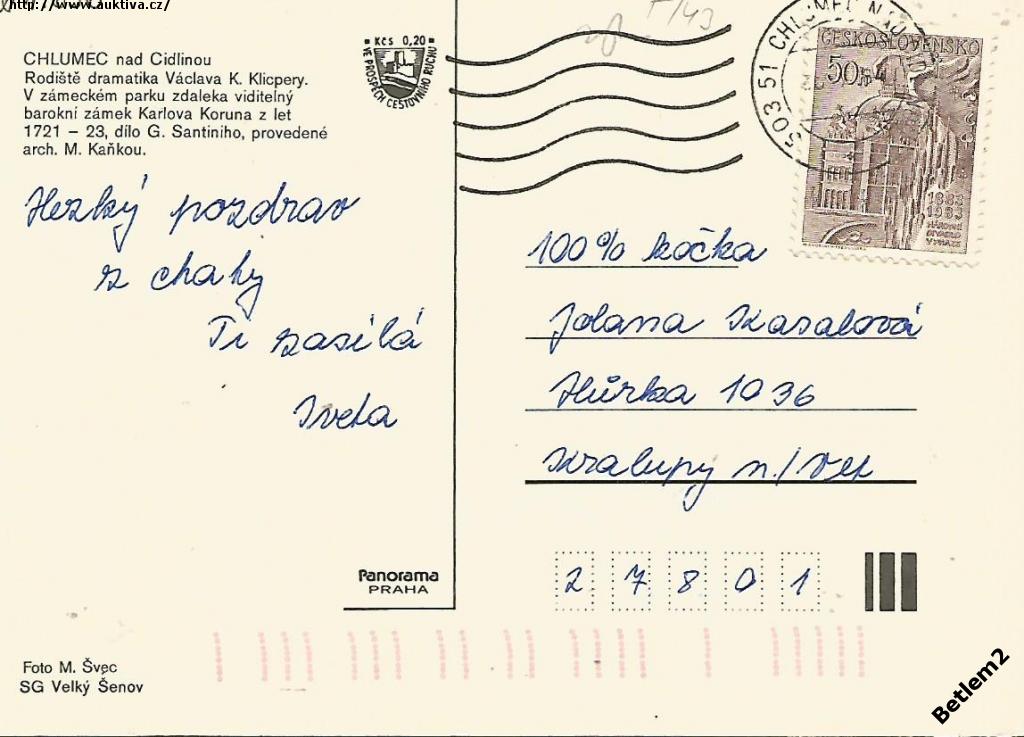 http://www.auktiva.cz/
CHLUMEC nad Cidlinou
Rodiště dramatika Václava K. Klicpery.
V zámeckém parku zdaleka viditelný
barokní zámek Karlova Koruna z let
1721 – 23, dílo G. Santiniho, provedené
arch. M. Kaňkou.
Kčs 0,20
VE PROSPĚCH CESTOVNÍHO RUCHU
503 51 CHLUMEC NAD
ČESKOSLOVENSKO
50h
1883
1983
NÁRODNÍ
DIVADLO
V PRAZE
Hezký pozdrav
z chaty
Ti zasílá
Iveta
100% kočka
Jolana Kasalová
Hůrka 1036
Kralupy n./Vlt
27801
Panorama
PRAHA
Foto M. Švec
SG Velký Šenov
Betlem2